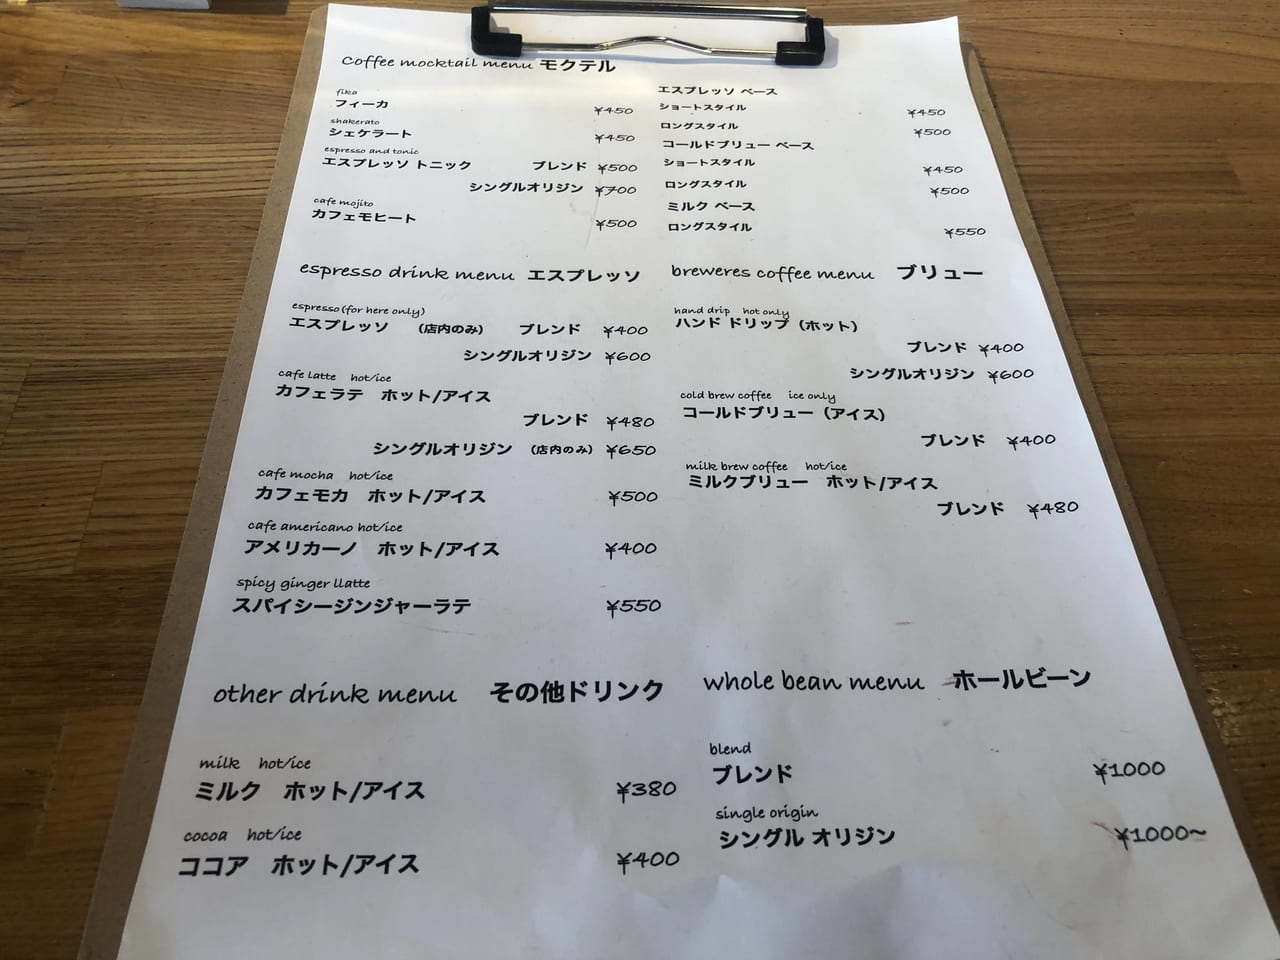 Coffee mocktail menu モクテル
fika
フィーカ ¥450
shakerato
シェケラート ¥450
espresso and tonic
エスプレッソ トニック ブレンド ¥500
シングルオリジン ¥700
cafe mojito
カフェモヒート ¥500
エスプレッソ ベース
ショートスタイル ¥450
ロングスタイル ¥500
コールドブリュー ベース
ショートスタイル ¥450
ロングスタイル ¥500
ミルク ベース
ロングスタイル ¥550
espresso drink menu エスプレッソ
espresso(for here only)
エスプレッソ (店内のみ) ブレンド ¥400
シングルオリジン ¥600
cafe latte hot/ice
カフェラテ ホット/アイス
ブレンド ¥480
シングルオリジン (店内のみ) ¥650
cafe mocha hot/ice
カフェモカ ホット/アイス ¥500
cafe americano hot/ice
アメリカーノ ホット/アイス ¥400
spicy ginger llatte
スパイシージンジャーラテ ¥550
breweres coffee menu ブリュー
hand drip hot only
ハンド ドリップ (ホット)
ブレンド ¥400
シングルオリジン ¥600
cold brew coffee ice only
コールドブリュー (アイス)
ブレンド ¥400
milk brew coffee hot/ice
ミルクブリュー ホット/アイス
ブレンド ¥480
other drink menu その他ドリンク
milk hot/ice
ミルク ホット/アイス ¥380
cocoa hot/ice
ココア ホット/アイス ¥400
whole bean menu ホールビーン
blend
ブレンド ¥1000
single origin
シングル オリジン ¥1000~